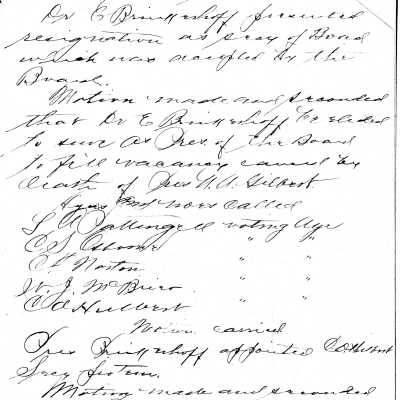 Dr E Brinkerhoff presented
resignation as Secy of Board
which was accepted by the
Board.
Motion made and seconded
that Dr E Brinkerhoff be elected
to serve as Pres of the Board
to fill vacancy caused by
death of Pres H. A. Hilbert
Ayes and noes called
voting Aye
C S " "
C L Norton "
W. J. McBriar "
C A Hulbert "
Motion carried
Pres Brinkerhoff appointed C A Hulbert
Secy
Motion made and seconded